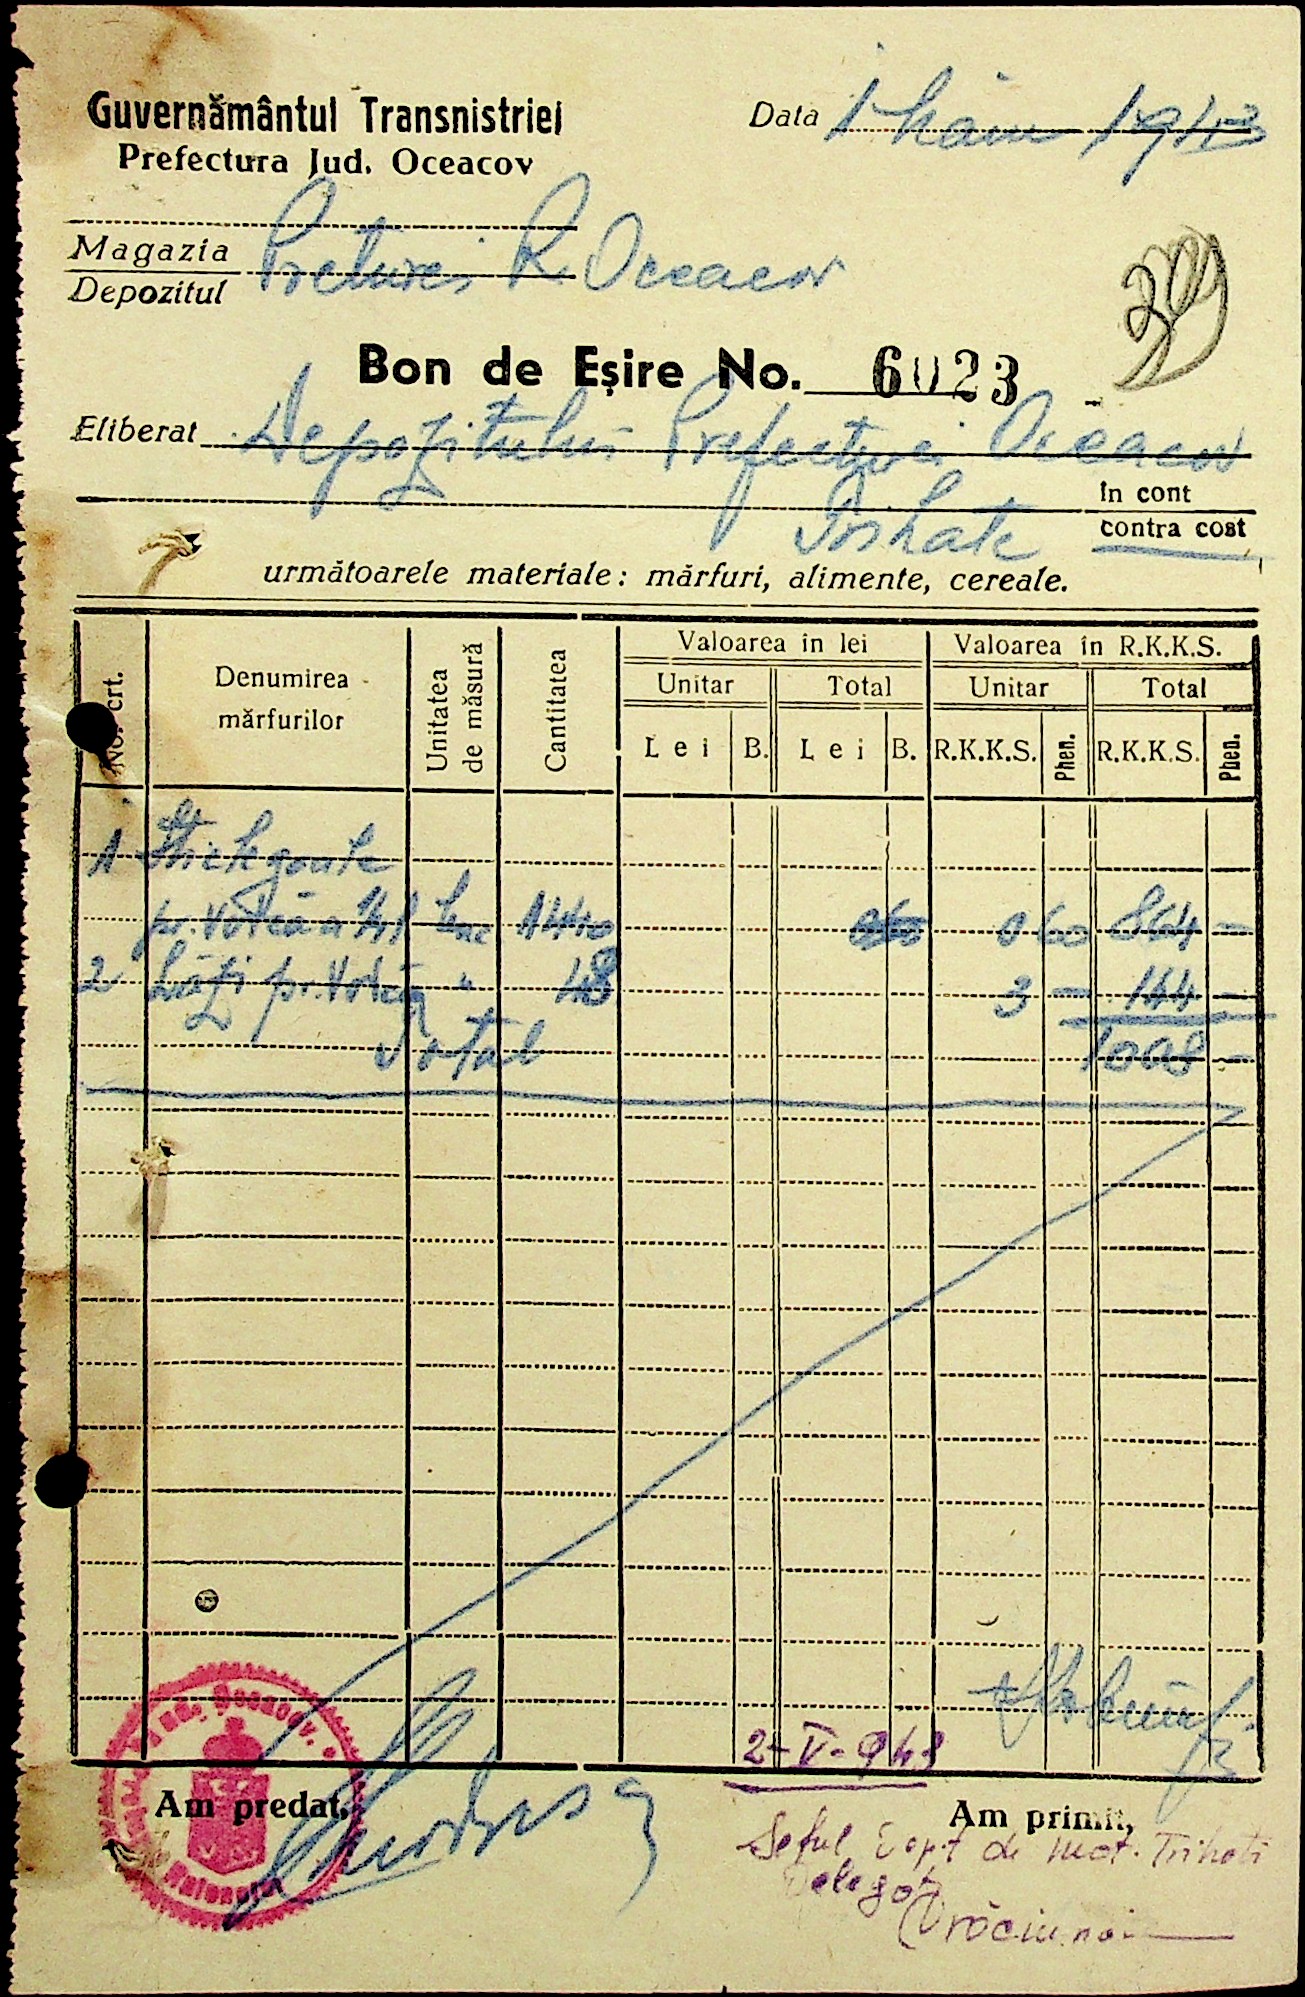 Guvernământul Transnistriei
Data 1 1943
Prefectura Jud. Oceacov
Magazia
Depozitul
Preturei R. Oceacov
309
Bon de Eșire No. 6023
Eliberat Depozitului Prefecturei Oceacov
în cont
contra cost
următoarele materiale: mărfuri, alimente, cereale.
No. crt. Denumirea mărfurilor Unitatea de măsură Cantitatea Valoarea în lei Valoarea în R.K.K.S.
Unitar Total Unitar Total
Lei B. Lei B. R.K.K.S. Phen. R.K.K.S. Phen.
1 Sticle goale
pr. Votcă a 1440 0 60 864 -
2 Lăzi pr. Votcă " 48 3 - 144 -
Total 1008 -
2-V-943
Am predat,
Am primit,
Șeful de Mat. Trihati
Delegat